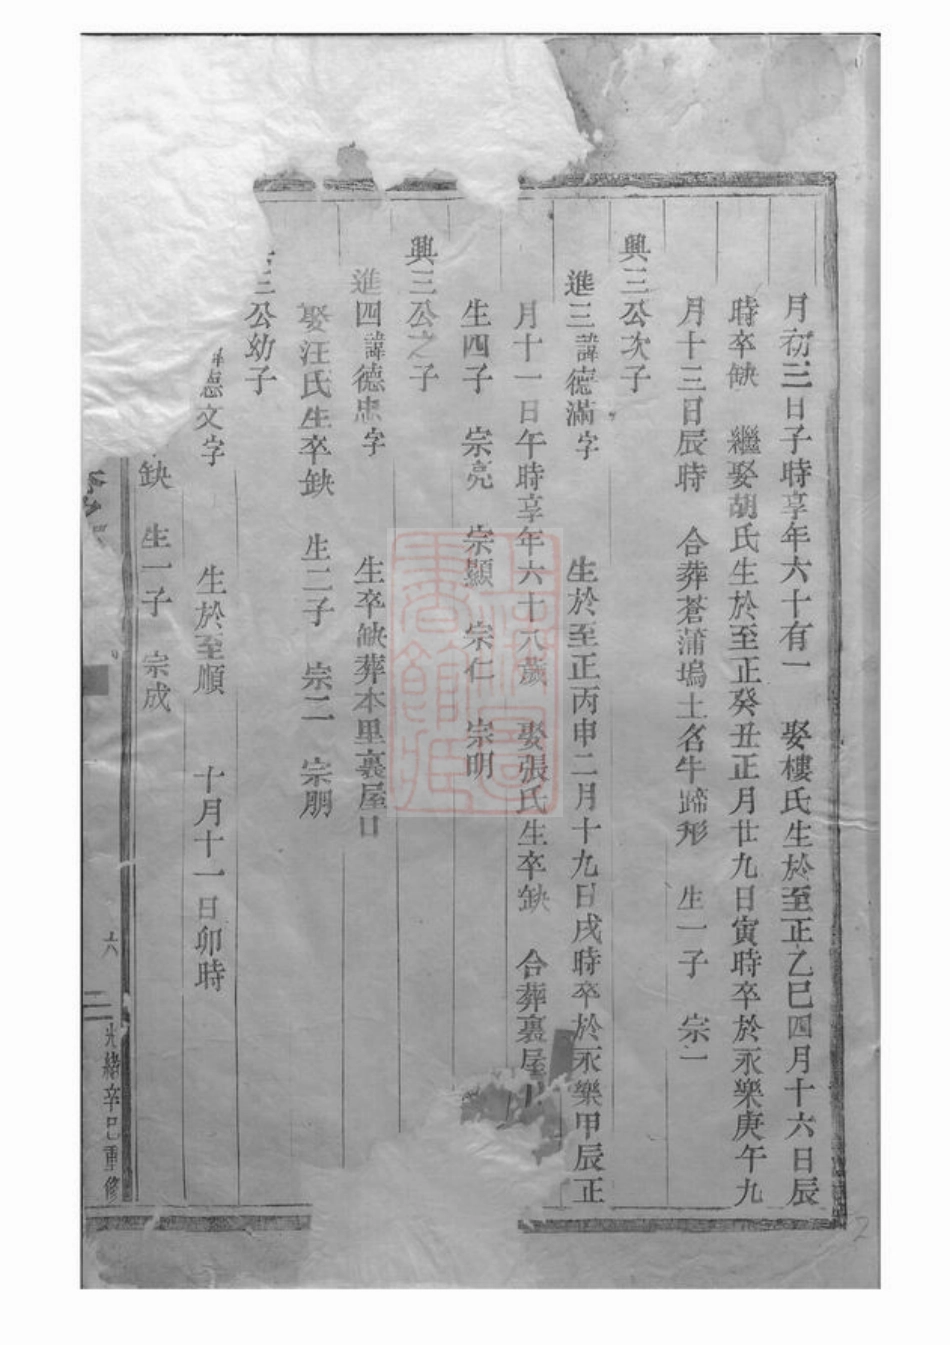 月初三日子時享年六十有一　娶樓氏生於至正乙巳四月十六日辰
時卒缺　繼娶胡氏生於至正癸丑正月廿九日寅時卒於永樂庚午九
月十三日辰時　合葬蒼蒲塢土名牛蹄形　生一子　宗一
興三公次子
進三諱德滿字　生於至正丙申二月十九日戌時卒於永樂甲辰正
月十一日午時享年六十八歲　娶張氏生卒缺　合葬裏屋
生四子　宗亮　宗顯　宗仁　宗明
興三公之子
進四諱德忠字　生卒缺葬本里裏屋
娶汪氏生卒缺　生二子　宗二　宗朋
三公幼子
德文字　生於至順　十月十一日卯時
缺　生一子　宗成
六
光緒辛巳重修